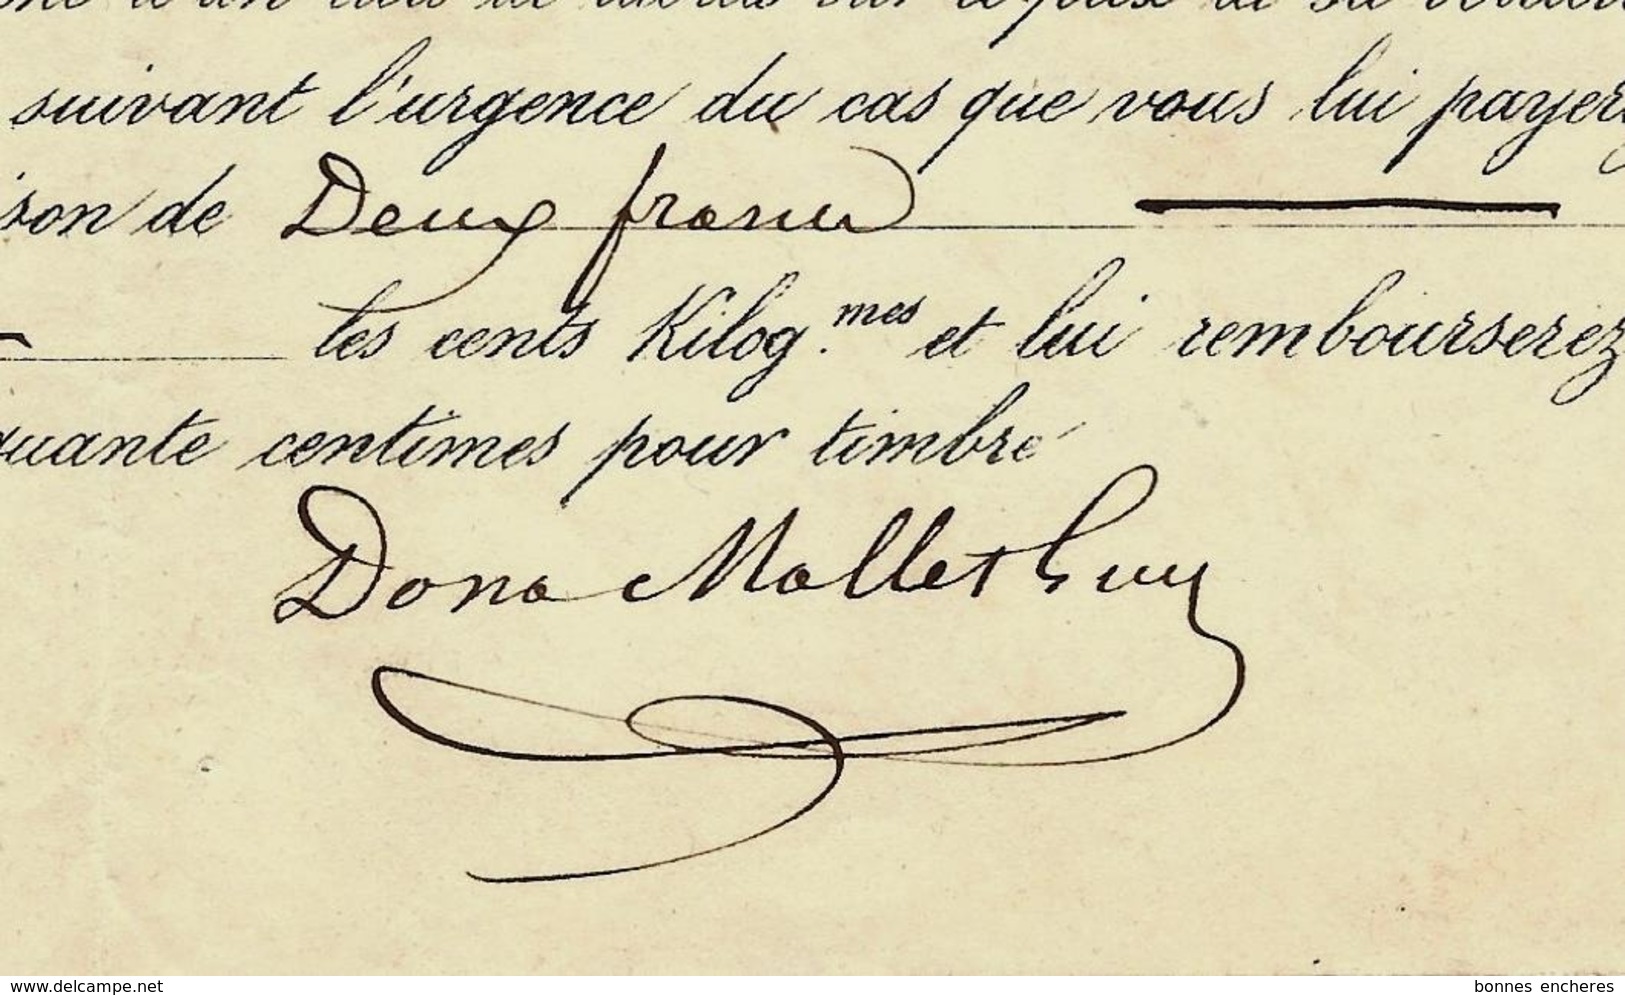 suivant l'urgence du cas que vous lui payerez
ison de Deux francs
les cents Kilog.mes et lui rembourserez
quante centimes pour timbre
Dona Mallet Guy
www.delcampe.net
bonnes encheres